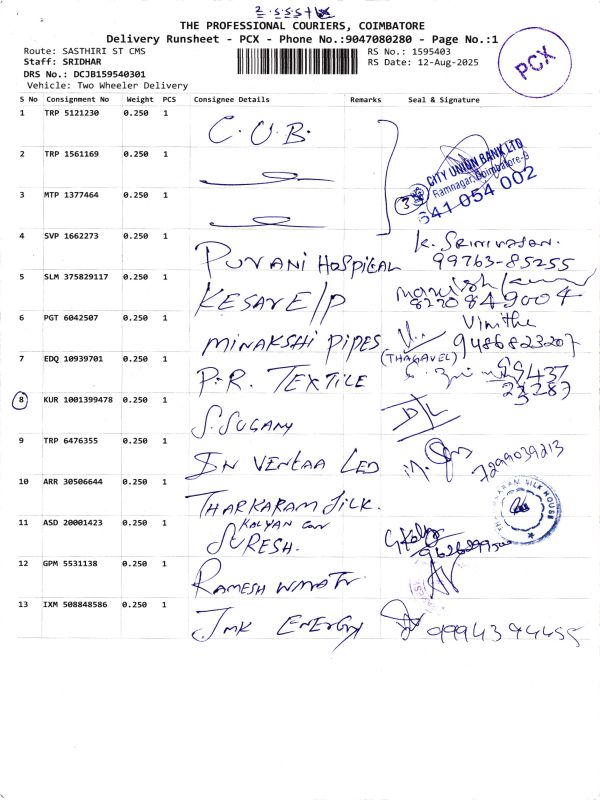 THE PROFESSIONAL COURIERS, COIMBATORE
Delivery Runsheet - PCX - Phone No.:9047080280 - Page No.:1
Route: SASTHIRI ST CMS
RS No.: 1595403
Staff: SRIDHAR
RS Date: 12-Aug-2025
PCX
DRS No.: DCJB159540301
Vehicle: Two Wheeler Delivery
S No Consignment No Weight PCS Consignee Details Remarks Seal & Signature
1 TRP 5121230 0.250 1 C.U.B.
2 TRP 1561169 0.250 1
CITY UNION BANK LTD
Ramnagar, Coimbatore-9
3
641 054 002
3 MTP 1377464 0.250 1
4 SVP 1662273 0.250 1 PURANI HOSPITAL K. SRINIVASAN.
99763-85255
5 SLM 375829117 0.250 1 KESAV E/P
8220849004
6 PGT 6042507 0.250 1 MINAKSHI PIPES Vinitha
(THAGAVEL) 9486823207
7 EDQ 10939701 0.250 1 P.R. TEXTILE
8 KUR 1001399478 0.250 1 S.SUGANY
9 TRP 6476355 0.250 1 IN VENTAA LED 7299039213
10 ARR 30506644 0.250 1 THARKARAM SILK.
11 ASD 20001423 0.250 1 KALYAN
SURESH.
12 GPM 5531138 0.250 1 RAMESH
13 IXM 508848586 0.250 1 JMK ENERGY 9994394455